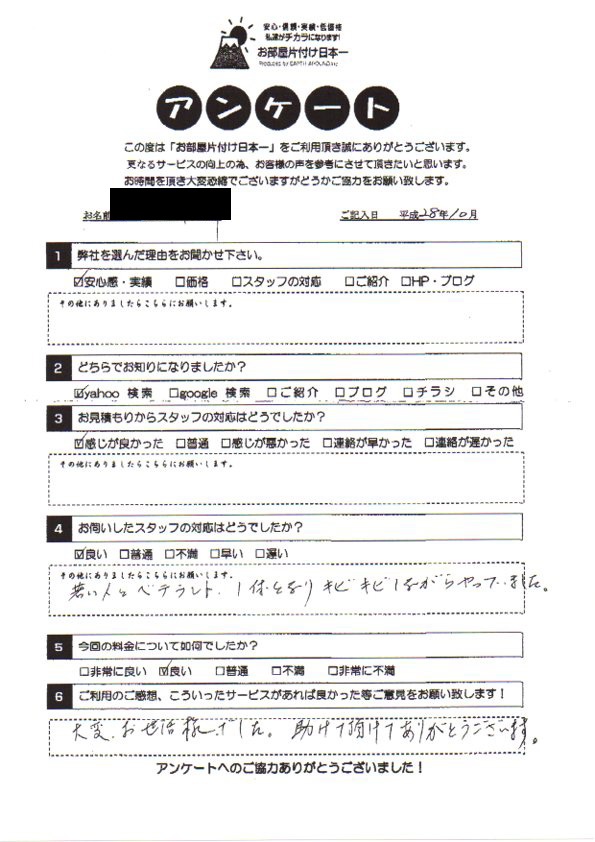 安心・信頼・実績・低価格
私達がチカラになります!
お部屋片付け日本一
Produced by EARTH AROUND inc
アンケート
この度は「お部屋片付け日本一」をご利用頂き誠にありがとうございます。
更なるサービスの向上の為、お客様の声を参考にさせて頂きたいと思います。
お時間を頂き大変恐縮でございますがどうかご協力をお願い致します。
お名前 ご記入日 平成28年10月
1 弊社を選んだ理由をお聞かせ下さい。
☑安心感・実績 □価格 □スタッフの対応 □ご紹介 □HP・ブログ
その他にありましたらこちらにお願いします。
2 どちらでお知りになりましたか?
☑yahoo 検索 □google 検索 □ご紹介 □ブログ □チラシ □その他
3 お見積もりからスタッフの対応はどうでしたか?
☑感じが良かった □普通 □感じが悪かった □連絡が早かった □連絡が遅かった
その他にありましたらこちらにお願いします。
4 お伺いしたスタッフの対応はどうでしたか?
☑良い □普通 □不満 □早い □遅い
その他にありましたらこちらにお願いします。
若い人とベテランと、1体となり キビキビしながらやって ました。
5 今回の料金について如何でしたか?
□非常に良い ☑良い □普通 □不満 □非常に不満
6 ご利用のご感想、こういったサービスがあれば良かった等ご意見をお願い致します!
大変、お世話様でした。助けて頂けてありがとうございます。
アンケートへのご協力ありがとうございました!